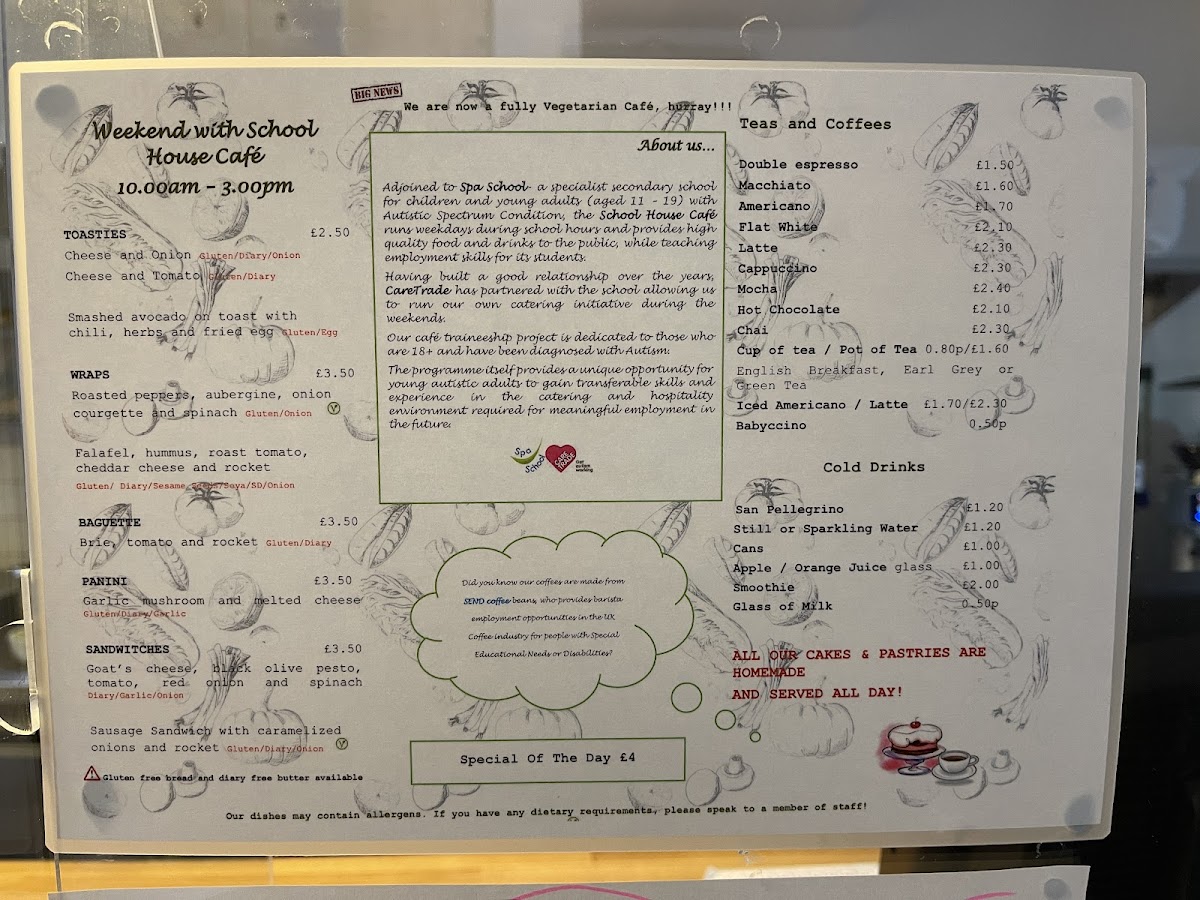 BIG NEWS
We are now a fully Vegetarian Café, hurray!!!
Weekend with School
House Café
10.00am – 3.00pm
TOASTIES £2.50
Cheese and Onion Gluten/Diary/Onion
Cheese and Tomato Gluten/Diary
Smashed avocado on toast with
chili, herbs and fried egg Gluten/Egg
WRAPS £3.50
Roasted peppers, aubergine, onion
courgette and spinach Gluten/Onion V
Falafel, hummus, roast tomato,
cheddar cheese and rocket
Gluten/ Diary/Sesame Seeds/Soya/SD/Onion
BAGUETTE £3.50
Brie, tomato and rocket Gluten/Diary
PANINI £3.50
Garlic mushroom and melted cheese
Gluten/Diary/Garlic
SANDWITCHES £3.50
Goat's cheese, black olive pesto,
tomato, red onion and spinach
Diary/Garlic/Onion
Sausage Sandwich with caramelized
onions and rocket Gluten/Diary/Onion V
Gluten free bread and diary free butter available
About us...
Adjoined to Spa School- a specialist secondary school
for children and young adults (aged 11 - 19) with
Autistic Spectrum Condition, the School House Café
runs weekdays during school hours and provides high
quality food and drinks to the public, while teaching
employment skills for its students.
Having built a good relationship over the years,
CareTrade has partnered with the school allowing us
to run our own catering initiative during the
weekends.
Our café traineeship project is dedicated to those who
are 18+ and have been diagnosed with Autism.
The programme itself provides a unique opportunity for
young autistic adults to gain transferable skills and
experience in the catering and hospitality
environment required for meaningful employment in
the future.
Spa
School
CARE
TRADE
Get
autism
working
Did you know our coffees are made from
SEND coffee beans, who provides barista
employment opportunities in the UK
Coffee industry for people with Special
Educational Needs or Disabilities?
Special Of The Day £4
Teas and Coffees
Double espresso £1.50
Macchiato £1.60
Americano £1.70
Flat White £2.10
Latte £2.30
Cappuccino £2.30
Mocha £2.40
Hot Chocolate £2.10
Chai £2.30
Cup of tea / Pot of Tea 0.80p/£1.60
English Breakfast, Earl Grey or
Green Tea
Iced Americano / Latte £1.70/£2.30
Babyccino 0.50p
Cold Drinks
San Pellegrino £1.20
Still or Sparkling Water £1.20
Cans £1.00
Apple / Orange Juice glass £1.00
Smoothie £2.00
Glass of Milk 0.50p
ALL OUR CAKES & PASTRIES ARE
HOMEMADE
AND SERVED ALL DAY!
Our dishes may contain allergens. If you have any dietary requirements, please speak to a member of staff!